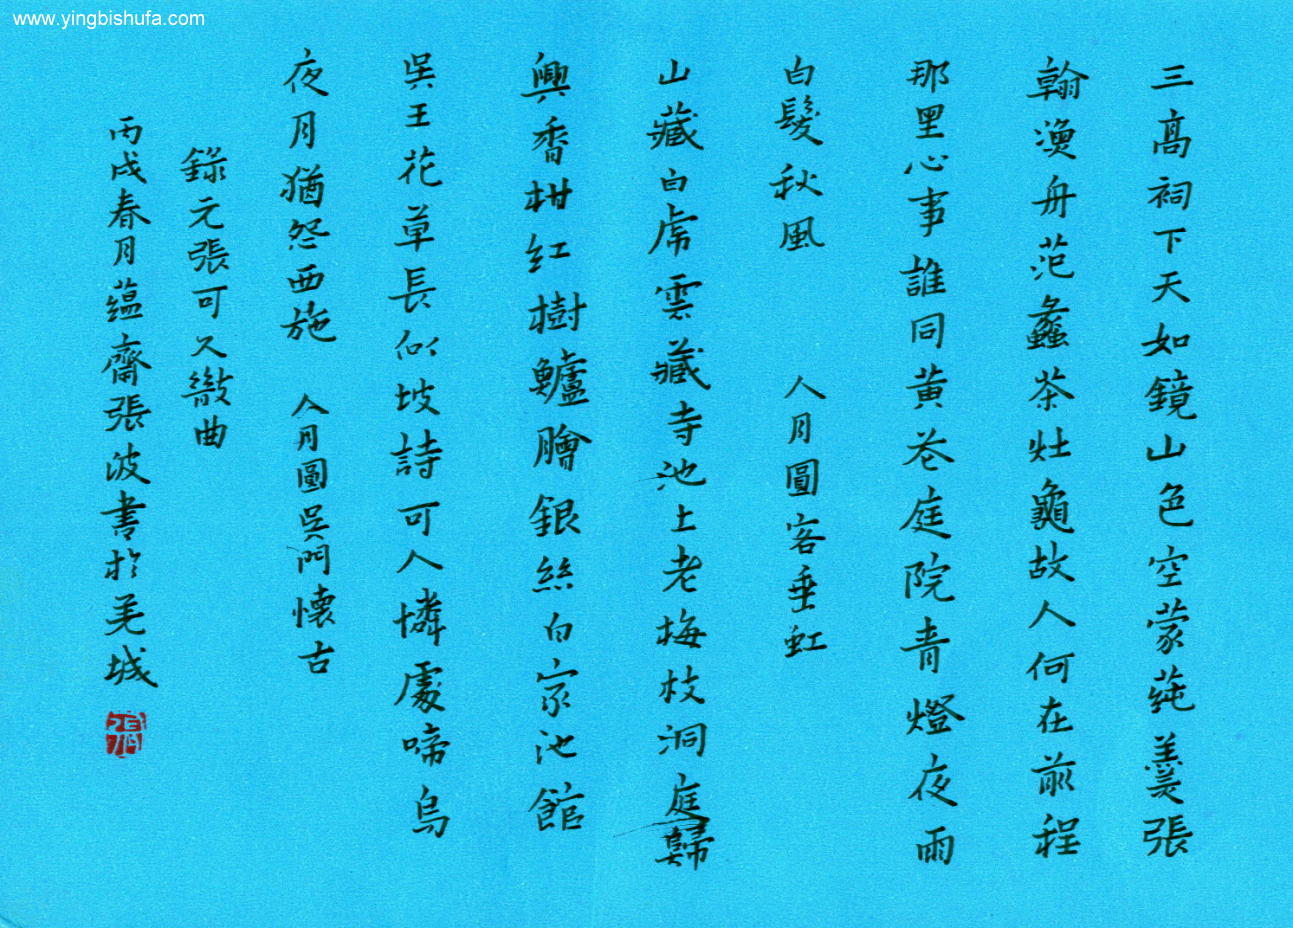 www.yingbishufa.com
三高祠下天如鏡山色空蒙莼羹張
翰漁舟范蠡茶灶龜故人何在前程
那里心事誰同黄花庭院青燈夜雨
白髮秋風 人月圓客垂虹
山藏白虎雲藏寺池上老梅枝洞庭歸
興香柑紅樹鱸膾銀絲白家池館
吳王花草長似坡詩可人憐處啼烏
夜月猶怨西施 人月圓吳門懷古
錄元張可久散曲
丙戌春月蕴齋張波書於羌城